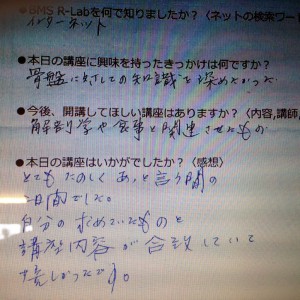 ●BMS R-Labを何で知りましたか？〈ネットの検索ワー
インターネット
●本日の講座に興味を持ったきっかけは何ですか？
骨盤に対しての知識を深めたかった
●今後、開講してほしい講座はありますか？〈内容,講師
解剖学や食事と関連させたもの
●本日の講座はいかがでしたか？〈感想〉
とてもたのしくあっと言う間の
時間でした。
自分の求めていたものと
講座内容が合致していて
嬉しかったです。